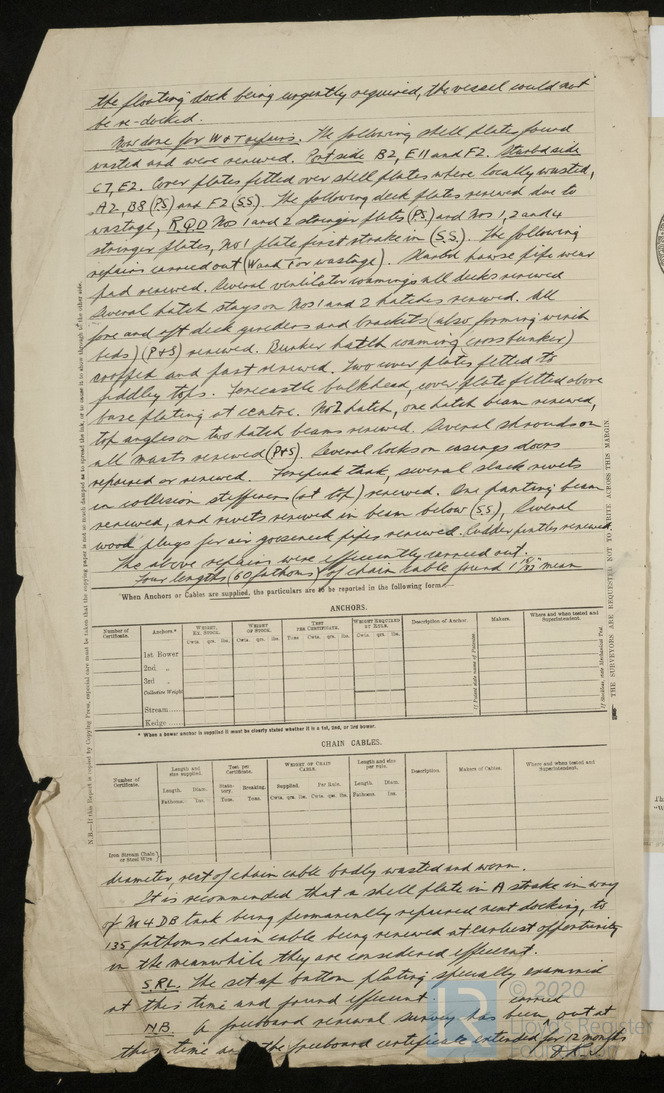 the floating dock being urgently required, the vessel could not
be re-docked.
Now done for W & T repairs. The following shell plates found
wasted and were renewed. Port side B2, E11 and F2. Starbd side
C7, E2. Cover plates fitted over shell plates where locally wasted,
A2, B8 (PS) and F2 (SS). The following deck plates renewed due to
wastage, R.Q.D Nos 1 and 2 stringer plates (PS) and Nos 1, 2 and 4
stringer plates, No 1 plate first strake in (S.S). The following
repairs carried out (W and T or wastage). Starbd hawse pipe wear
pad renewed. Several ventilator coamings all decks renewed
Several hatch stays on Nos 1 and 2 hatches renewed. All
fore and aft deck girders and brackets (also forming winch
beds) (P&S) renewed. Bunker hatch coaming (cross bunker)
cropped and part renewed. Two cover plates fitted to
fiddley tops. Forecastle bulkhead, cover plate fitted above
base plating at centre. No 2 hatch, one hatch beam renewed,
top angles on two hatch beams renewed. Several shrouds on
all masts renewed (P&S). Several locks on casings doors
repaired or renewed. Forepeak tank, several slack rivets
in collision stiffeners (at top) renewed. One panting beam
renewed, and rivets renewed in beam below (S.S), Several
wood plugs for air gooseneck pipes renewed. Rudder pintles renewed.
The above repairs were efficiently carried out.
Four lengths (60 fathoms) of chain cable found 1 mean
When Anchors or Cables are supplied, the particulars are to be reported in the following form
ANCHORS.
Number of Certificate. Anchors.* WEIGHT, EX. STOCK. WEIGHT OF STOCK. TEST PER CERTIFICATE. WEIGHT REQUIRED BY RULE. Description of Anchor. Makers. Where and when tested and Superintendent.
Cwts. qrs. lbs. Cwts. qrs. lbs. Tons cwts. qrs. lbs. Cwts. qrs. lbs.
1st Bower
2nd „
3rd „
Collective Weight
Stream
Kedge
* When a bower anchor is supplied it must be clearly stated whether it is a 1st, 2nd, or 3rd bower.
CHAIN CABLES.
Number of Certificate. Length and size supplied. Test per Certificate. WEIGHT OF CHAIN CABLE. Length and size per rule. Description. Makers of Cables. Where and when tested and Superintendent.
Length. Diam. Statutory. Breaking. Supplied. Per Rule. Length. Diam.
Fathoms. Ins. Tons. Tons. Cwts. qrs. lbs. Cwts. qrs. lbs. Fathoms. Ins.
Iron Stream Chain or Steel Wire
diameter, rest of chain cable badly wasted and worn.
It is recommended that a shell plate in A strake in way
of No 4 DB tank being permanently repaired next docking, to
135 fathoms chain cable being renewed at earliest opportunity
in the meanwhile they are considered efficient.
S.R.L. The set up bottom plating specially examined
at this time and found efficient.
carried
N.B. A freeboard renewal survey has been out at
this time and the freeboard certificate extended for 12 months
N.B.—If this Report is copied by Copying Press, especial care must be taken that the copying paper is not so much damped as to spread the ink, or to cause it to show through to the other side.
THE SURVEYORS ARE REQUESTED NOT TO WRITE ACROSS THIS MARGIN.
© 2020
Lloyd's Register
Foundation